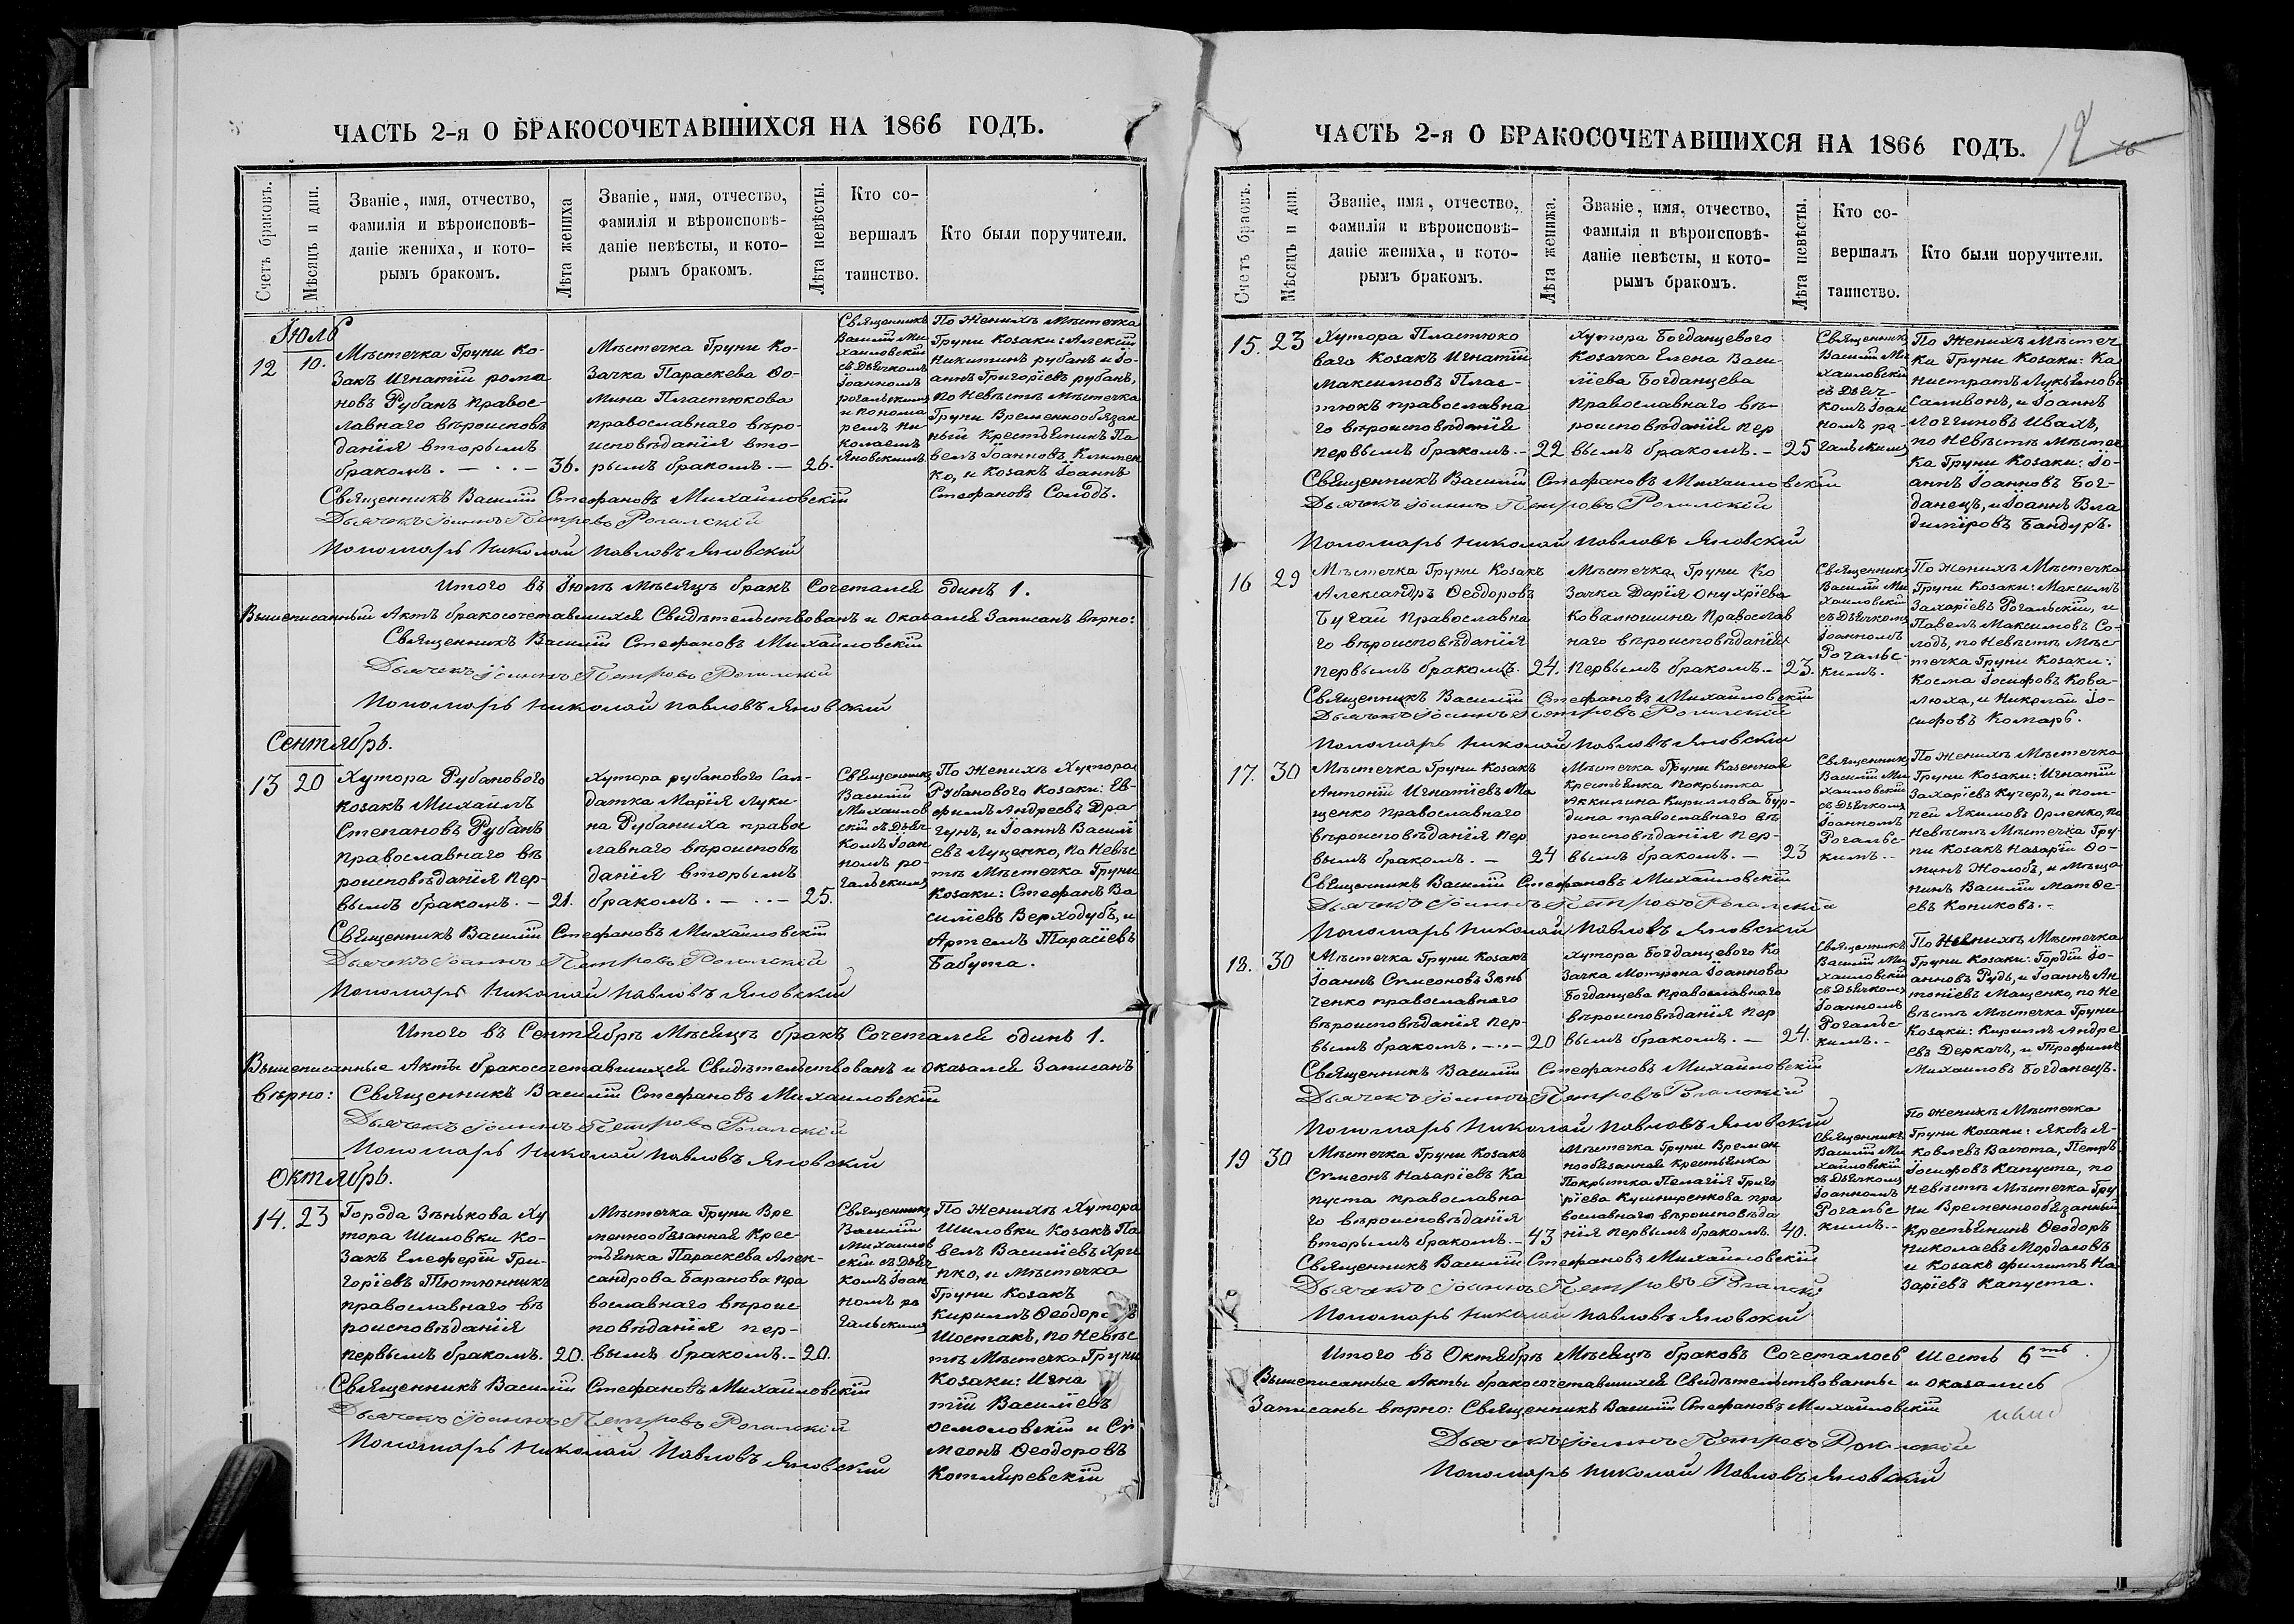 ЧАСТЬ 2-я О БРАКОСОЧЕТАВШИХСЯ НА 1866 ГОДЪ.
Счетъ браковъ.
Мѣсяцъ и дни.
Званіе, имя, отчество,
фамилія и вѣроисповѣ-
даніе жениха, и кото-
рымъ бракомъ.
Лѣта жениха
Званіе, имя, отчество,
фамилія и вѣроисповѣ-
даніе невѣсты, и кото-
рымъ бракомъ.
Лѣта невѣсты.
Кто со-
вершалъ
таинство.
Кто были поручители.
Іюль
12
10.
Мѣстечка Груни ко-
закъ Игнатій рома
новъ Рубанъ правос-
лавнаго вѣроисповѣ
данія вторымъ
бракомъ.
36.
Мѣстечка Груни ко-
зачка Параскева Ѳо-
мина Пластюкова
православнаго вѣро-
исповѣданія вто-
рымъ бракомъ.
26.
Священникъ
Василій Ми-
хайловскій
съ Дьячкомъ
Іоанномъ
рогальскимъ
и понома
ремъ Ни
колаемъ
Яновскимъ
По Женихѣ Мѣстечка
Груни Козаки: Алексій
Никитинъ рубанъ и Іо-
аннъ Григоріевъ рубанъ,
по Невѣстѣ Мѣстечка
Груни Временнообязан
ный Крестьянинъ Па
велъ Іоанновъ Климен
ко, и Козакъ Іоаннъ
Стефановъ Солодъ.
Священникъ Василій Стефановъ Михайловскій
Дьячекъ Іоаннъ Петровъ Рогалскій
Пономарь Николай Павловъ Яновскій
Итого въ Іюлѣ мѣсяцѣ бракъ Сочетался одинъ 1.
Вышеписанный Актъ бракосочетавшихся Свидѣтельствованъ и оказался Записанъ вѣрно:
Священникъ Василій Стефановъ Михайловскій
Дьячекъ Іоаннъ Петровъ Рогалскій
Пономарь Николай Павловъ Яновскій
Сентябрь.
13
20
Хутора Рубанового
козакъ Михаилъ
Степановъ Рубанъ
православнаго вѣ
роисповѣданія пер-
вымъ бракомъ.
21.
Хутора рубанового Сол-
датка Марія Луки
на Рубаниха правос
лавнаго вѣроисповѣ
данія вторымъ
бракомъ.
25.
Священникъ
Василій
Михайлов
скій съ Дьяч
комъ Іоан
номъ ро-
гальскимъ
По Женихѣ Хутора
Рубанового Козаки: Ев-
фимъ Андреевъ Дра-
гунъ, и Іоаннъ Василі
евъ Луценко, по Невѣс
тѣ Мѣстечка Груни
Козаки: Стефанъ Ва
силіевъ Верходубъ, и
Артемъ Тарасіевъ
Бабута.
Священникъ Василій Стефановъ Михайловскій
Дьячекъ Іоаннъ Петровъ Рогалскій
Пономарь Николай Павловъ Яновскій
Итого въ Сентябрѣ Мѣсяцѣ бракъ Сочетался одинъ 1.
Вышеписанные Акты бракосочетавшихся Свидѣтельствованъ и оказался Записанъ
вѣрно: Священникъ Василій Стефановъ Михайловскій
Дьячекъ Іоаннъ Петровъ Рогалскій
Пономарь Николай Павловъ Яновскій
Октябрь.
14.
23
Города Зѣнькова Ху
тора Шиловки Ко-
закъ Елеферій Гри-
горіевъ Тютюнникъ
православнаго вѣ
роисповѣданія
первымъ бракомъ.
20.
Мѣстечка Груни Вре
меннообязанная Крес-
тьянка Параскева Алек-
сандрова Баранова пра
вославнаго вѣроис
повѣданія пер-
вымъ бракомъ.
20.
Священникъ
Василій
Михайлов
скій съ Дьяч
комъ Іоан
номъ ро
гальскимъ
По Женихѣ Хутора
Шиловки Козакъ Па
велъ Василіевъ Хри
пко, и Мѣстечка
Груни Козакъ
Кириллъ Ѳеодоровъ
Шостакъ, по Невѣс
тѣ Мѣстечка Груни
Козаки: Игна
тій Василіевъ
Осмоловскій и Сѵ
меонъ Ѳеодоровъ
Котляревскій
Священникъ Василій Стефановъ Михайловскій
Дьячекъ Іоаннъ Петровъ Рогалскій
Пономарь Николай Павловъ Яновскій
ЧАСТЬ 2-я О БРАКОСОЧЕТАВШИХСЯ НА 1866 ГОДЪ.
12
Счетъ браковъ.
Мѣсяцъ и дни.
Званіе, имя, отчество,
фамилія и вѣроисповѣ-
даніе жениха, и кото-
рымъ бракомъ.
Лѣта жениха.
Званіе, имя, отчество,
фамилія и вѣроисповѣ-
даніе невѣсты, и кото-
рымъ бракомъ.
Лѣта невѣсты.
Кто со-
вершалъ
таинство.
Кто были поручители.
15.
23
Хутора Пластюко
ваго Козакъ Игнатій
Максимовъ Плас-
тюкъ православна
го вѣроисповѣданія
первымъ бракомъ.
22
Хутора Богданцевого
Козачка Елена Васи-
ліева Богданцева
православнаго вѣ-
роисповѣданія пер
вымъ бракомъ.
25
Священникъ
Василій Ми
хайловскій
съ Дьяч-
комъ Іоан
номъ ро-
гальскимъ
По Женихѣ Мѣстеч
ка Груни Козаки: Ка
нистратъ Лукьяновъ
Саливонъ, и Іоаннъ
Логгиновъ Ивахъ,
по Невѣстѣ Мѣстеч
ка Груни Козаки: Іо-
аннъ Іоанновъ Бог-
данецъ, и Іоаннъ Вла
диміровъ Бандуръ.
Священникъ Василій Стефановъ Михайловскій
Дьячекъ Іоаннъ Петровъ Рогалскій
Пономарь Николай Павловъ Яновскій
16
29
Мѣстечка Груни Козакъ
Александръ Ѳеодоровъ
Бугай Православна
го вѣроисповѣданія
первымъ бракомъ.
24.
Мѣстечка Груни Ко
зачка Дарія Онуфріева
Ковалюшина Православ
наго вѣроисповѣданія
первымъ бракомъ.
23.
Священникъ
Василій Ми
хайловскій
съ Дьячкомъ
Іоанномъ
Рогальс-
кимъ.
По Женихѣ Мѣстечка
Груни Козаки: Максимъ
Захаріевъ Рогальскій, и
Павелъ Максимовъ Со-
лодъ, по Невѣстѣ Мѣс-
течка Груни Козаки:
Косма Іосифовъ Кова-
люха, и Николай Іо-
сифовъ Комаръ.
Священникъ Василій Стефановъ Михайловскій
Дьячекъ Іоаннъ Петровъ Рогалскій
Пономарь Николай Павловъ Яновскій
17.
30
Мѣстечка Груни Козакъ
Антоній Игнатіевъ Ма
щенко православнаго
вѣроисповѣданія пер
вымъ бракомъ.
24
Мѣстечка Груни Казенная
Крестьянка Покрытка
Аккилина Кириллова Бур-
дина православнаго вѣ
роисповѣданія пер-
вымъ бракомъ.
23
Священникъ
Василій Ми-
хайловскій
съ Дьячкомъ
Іоанномъ
Рогальс-
кимъ.
По Женихѣ Мѣстечка
Груни Козаки: Игнатій
Захаріевъ Кучеръ, и Пом-
пей Якимовъ Орленко, по
Невѣстѣ Мѣстечка Гру-
ни Козакъ Назарій Ѳо-
минъ Жолобъ, и Мѣща
нинъ Василій Матѳе-
евъ Кониковъ.
Священникъ Василій Стефановъ Михайловскій
Дьячекъ Іоаннъ Петровъ Рогалскій
Пономарь Николай Павловъ Яновскій
18.
30
Мѣстечка Груни Козакъ
Іоаннъ Сѵмеоновъ Зѣнь
ченко православнаго
вѣроисповѣданія пер-
вымъ бракомъ.
20
Хутора Богданцевого Ко
зачка Мотрона Іоаннова
Богданцева Православнаго
вѣроисповѣданія пер
вымъ бракомъ.
24.
Священникъ
Василій Ми-
хайловскій
съ Дьячкомъ
Іоанномъ
Рогальс-
кимъ.
По Женихѣ Мѣстечка
Груни Козаки: Гордій Іо-
анновъ Рудь, и Іоаннъ Ан
тоніевъ Мащенко, по Не
вѣстѣ Мѣстечка Груни
Козаки: Кириллъ Андре
евъ Деркачъ, и Трофимъ
Михаиловъ Богданецъ.
Священникъ Василій Стефановъ Михайловскій
Дьячекъ Іоаннъ Петровъ Рогалскій
Пономарь Николай Павловъ Яновскій
19
30
Мѣстечка Груни Козакъ
Сѵмеонъ Назаріевъ Ка
пуста православна
го вѣроисповѣданія
вторымъ бракомъ.
43
Мѣстечка Груни Времен
нообязанная крестьянка
Покрытка Пелагія Григо
ріева Кушниренкова пра
вославнаго вѣроисповѣда
нія первымъ бракомъ.
40.
Священникъ
Василій Ми
хайловскій
съ Дьячкомъ
Іоанномъ
Рогальс
кимъ.
По Женихѣ Мѣстечка
Груни Козаки: Яковъ Я-
ковлевъ Васюта, Петръ
Іосифовъ Капуста, по
Невѣстѣ Мѣстечка Гру
ни Временнообязанный
Крестьянинъ Ѳеодоръ
Николаевъ Мордасовъ
и Козакъ Филиппъ На
заріевъ Капуста.
Священникъ Василій Стефановъ Михайловскій
Дьячекъ Іоаннъ Петровъ Рогалскі
Пономарь Николай Павловъ Яновскій
Итого въ Октябрѣ Мѣсяцѣ браковъ Сочеталось шесть 6ть.
Вышеписанные Акты бракосочетавшихся Свидѣтельствованы и оказались
Записаны вѣрно: Священникъ Василій Стефановъ Михайловскій
Дьячекъ Іоаннъ Петровъ Рогалскій
Пономарь Николай Павловъ Яновскій